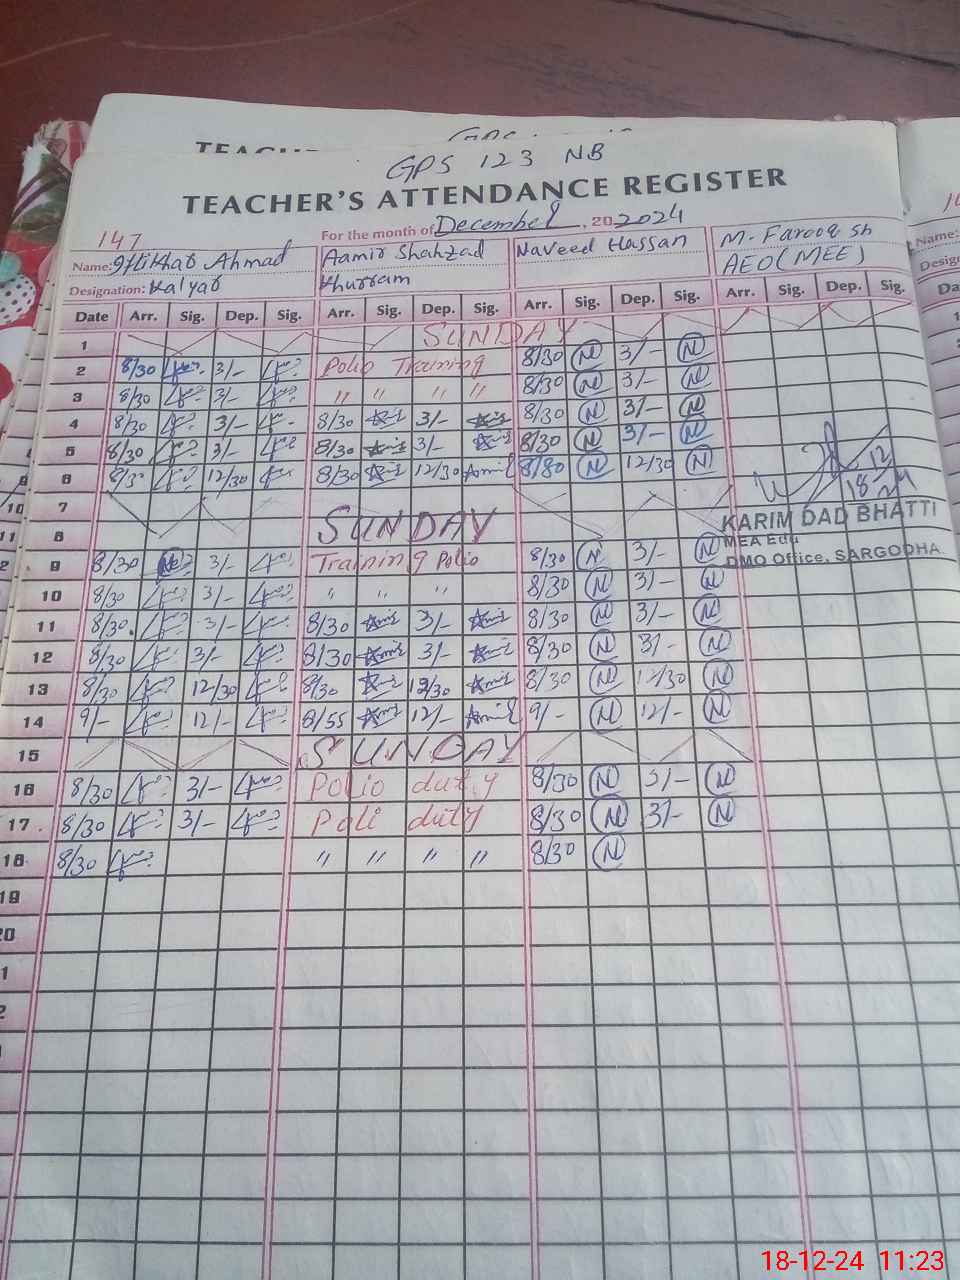 GPS 123 NB
TEACHER'S ATTENDANCE REGISTER
147
For the month of December, 20 2024
Name: Iftikhar Ahmad Aamir Shahzad Naveed Hassan M. Farooq sh
Designation: Kalyar Khurram AEO (MEE)
Date Arr. Sig. Dep. Sig. Arr. Sig. Dep. Sig. Arr. Sig. Dep. Sig. Arr. Sig. Dep. Sig.
1 SUNDAY
2 8/30 3/- Polio Training 8/30 N 3/- N
3 8/30 3/- " " " " 8/30 N 3/- N
4 8/30 3/- 8/30 3/- 8/30 N 3/- N
5 8/30 3/- 8/30 3/- 8/30 N 3/- N
6 8/30 12/30 8/30 12/30 Amir 8/30 N 12/30 N
7
8 SUNDAY
9 8/30 3/- Training Polio 8/30 N 3/- N
10 8/30 3/- " " " 8/30 N 3/- N
11 8/30 3/- 8/30 3/- 8/30 N 3/- N
12 8/30 3/- 8/30 3/- 8/30 N 3/- N
13 8/30 12/30 8/30 12/30 8/30 N 12/30 N
14 9/- 12/- 8/55 12/- Amir 9/- N 12/- N
15 SUNDAY
16 8/30 3/- Polio duty 8/30 N 3/- N
17 8/30 3/- Poli duty 8/30 N 3/- N
18 8/30 " " " " 8/30 N
19
20
18/12/24
KARIM DAD BHATTI
MEA Edu
DMO Office, SARGODHA
18-12-24 11:23